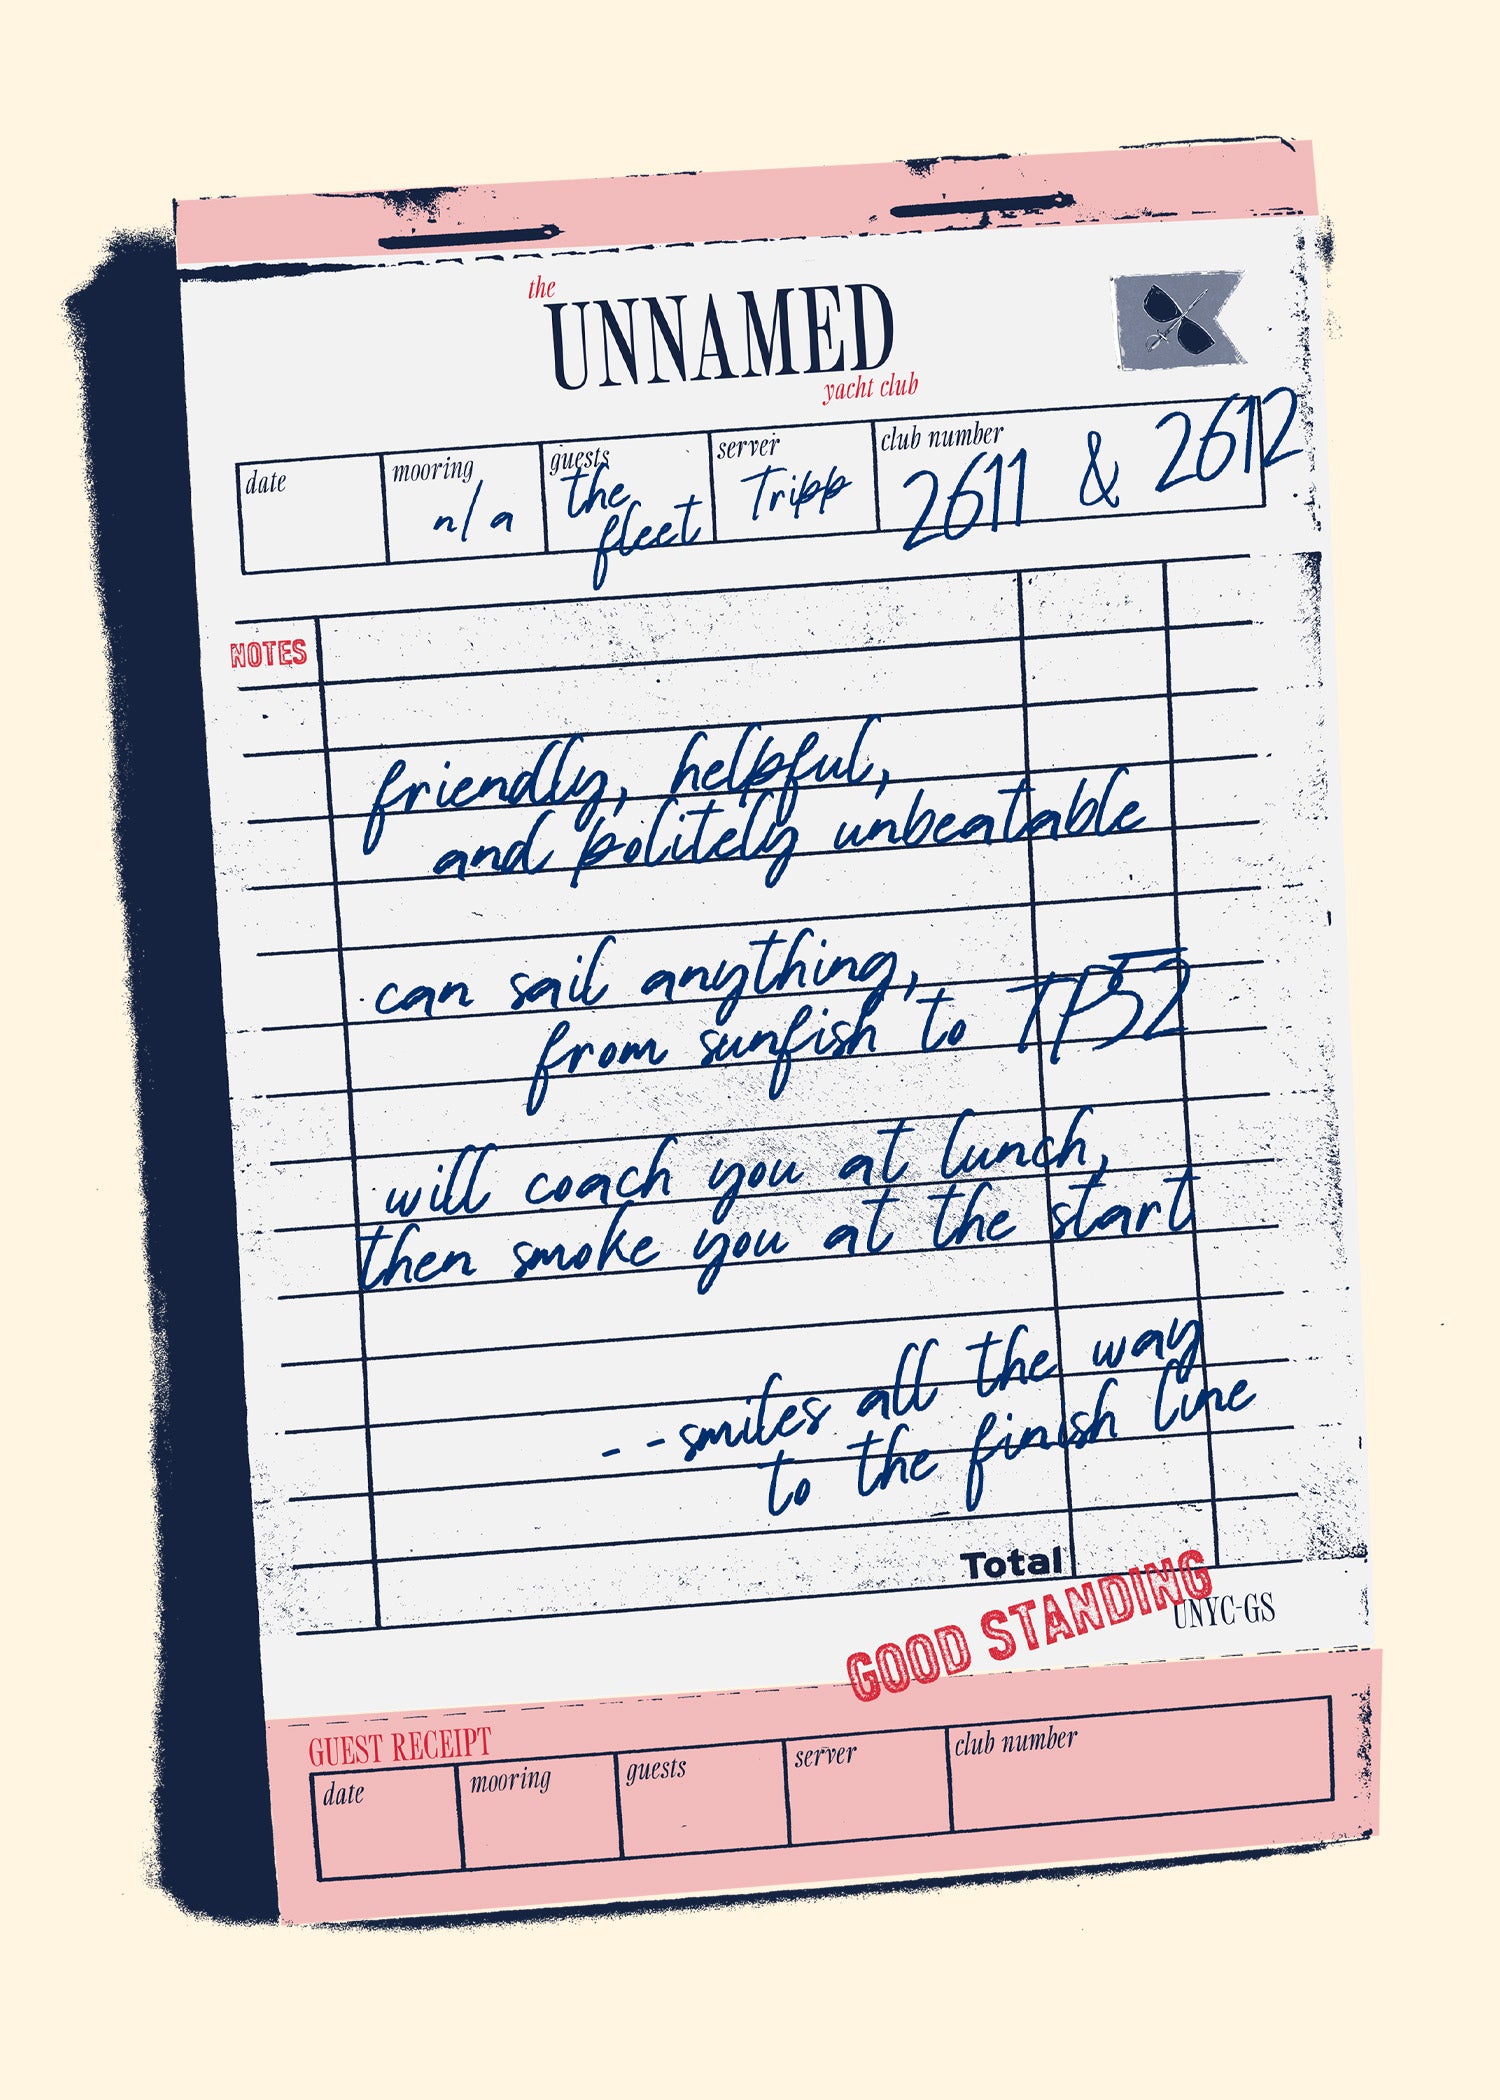 the
UNNAMED
yacht club
date mooring guests server club number
n/a the fleet Tripp 2611 & 2612
NOTES
friendly, helpful,
and politely unbeatable
can sail anything,
from sunfish to TP52
will coach you at lunch,
then smoke you at the start
--smiles all the way
to the finish line
Total
GOOD STANDING
UNYC-GS
GUEST RECEIPT
date mooring guests server club number